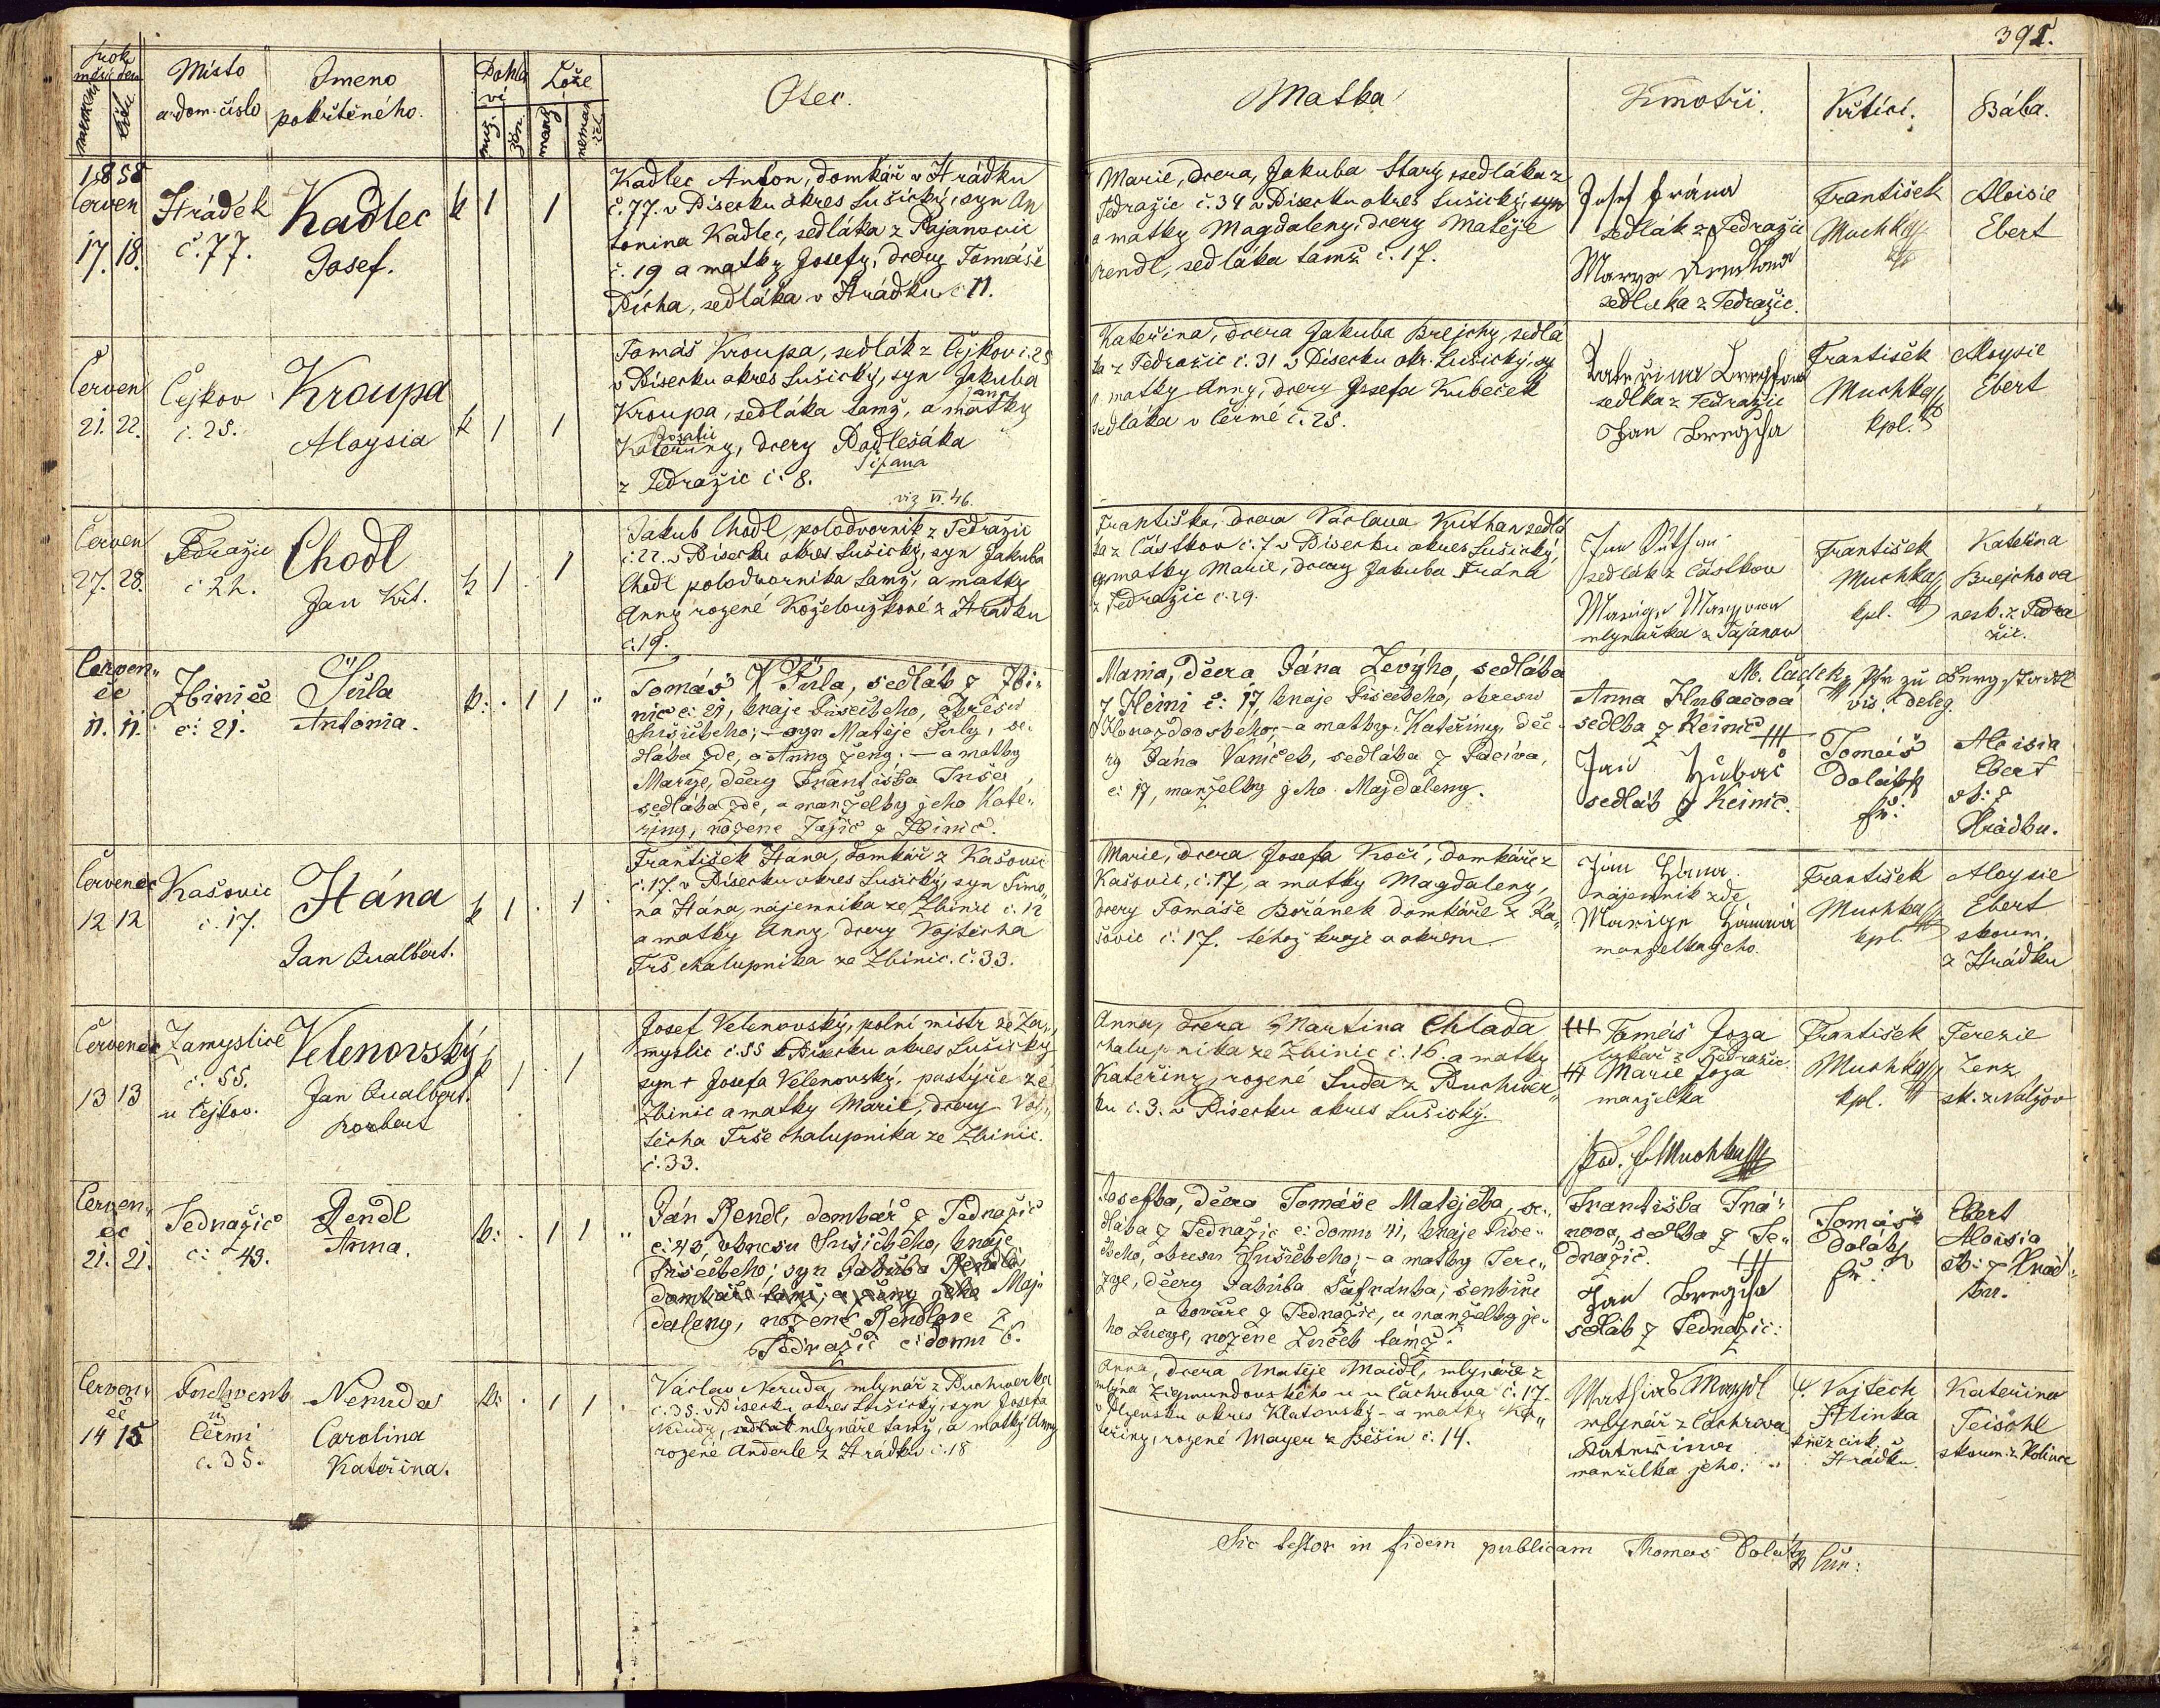 391.
Místo
a dom. číslo
Jmeno
pokřtěného.
Pohla
ví
muž.
žen.
Lože
manž
neman
žel.
Otec.
Matka
Kmotři.
Křtící.
Bába.
1858
Červen
17. 18.
Hrádek
č. 77.
Kadlec
Josef.
k 1 1
Kadlec Anton, domkář v Hrádku
č. 77. v Písecku okres Sušický, syn An
tonina Kadlec, sedláka z
č. 19 a matky Josefy, dcery Tomáše
Pícha, sedláka v Hrádku č 11.
Marie, dcera, Jakuba Starý, sedláka z
Tedražic č. 34 v Písecku okres Sušický, syn
a matky Magdaleny, dcery Matěje
Rendl, sedláka tamž č. 17.
Josef Frána
sedlák z Tedražic
Marye
sedlačka z Tedražic.
František
Muchka
Aloisie
Ebert
Červen
21. 22.
Čejkov
č. 25.
Kroupa
Aloysia
k 1 1
Tomáš Kroupa, sedlák z Čejkov č. 25
v Písecku okres Sušický, syn Jakuba
Kroupa, sedláka tamž, a matky
Rosalie
Kateřiny, dcery Podlešáka
z Tedražic č. 8.
viz VI. 46.
Kateřina, dcera Jakuba Brejchy, sedlá
ka z Tedražic č. 31 v Písecku okr. Sušický,
a matky Anny, dcery Josefa Kubeček
sedláka v Čermé č. 25.
Kateřina
sedlka z Tedražic
Jan Brejcha
František
Muchka
kpl.
Aloysie
Ebert
Červen
27. 28.
Tedražic
č 22.
Chodl
Jan Křt.
k 1 . 1
Jakub Chodl, polodvorník z Tedražic
č. 22. v Písecku okres Sušický, syn Jakuba
Chodl polodvorníka tamž, a matky
Anny rozené Koželouzkové z Hrádku
č. 19.
Františka, dcera Václava Kuthan sedlá
ka z Částkov č. 7 v Písecku okres Sušický,
a matky Marie, dcery Jakuba Frána
z Tedražic č. 29.
Jan
sedlák z Částkov
mlynářka z Tajanov
František
Muchka
kpl.
Kateřina
Brejchova
nesk. z Tedra
žic.
Červen„
ec
11. 11.
Zbinice
č: 21.
Šůla
Antonia.
k: . 1 1 "
Tomáš Šůla, sedlák z Zbi„
nic č: 21, kraje Píseckeho, okresu
Sušickeho; – syn Matěje Šuly, se„
dláka zde, a Anny ženy. – a matky
Marye, dcery Františka Trše
sedláka zde, a manželky jeho Kate„
řiny, rozene Jajic z Zbinic.
Maria, dcera, Jána Levýho, sedláka
z Keimi č: 17, kraje Píseckeho, okresu
Horazdovskeho; – a matky Kateřiny, dce„
ry Jána Vaníček, sedláka z
č: 17, manželky jeho Majdaleny.
Anna Hubačova
sedlka z Keinic
+++
Jan Hubač
sedlák z Keinic.
M. Čadek,
vis. deleg
Tomáš
Dolatz
fř:
Aloisia
Ebert
sk: z
Hrádku.
Červenec
12 12
Kašovic
č. 17.
Hána
Jan Qualbert.
k 1 . 1
František Hána, domkář z Kašovic
č. 17. v Písecku okres Sušický, syn Šimo„
na Hána, najemníka ze Zbinic č. 12
a matky Anny, dcery Vojtěcha
Trš, chalupníka ze Zbinic. č. 33.
Marie, dcera Josefa Kočí, domkáře z
Kašovic, č. 17, a matky Magdaleny,
dcery Tomáše Bořánek domkáře z Ka„
šovic č. 17. téhož kraje a okresu
Jan Hána.
nájemník zde
manželka jeho.
František
Muchka
kpl.
Aloysie
Ebert
skoum.
z Hrádku
Červenec
13 13
Zamyslice
č. 55.
u Čejkov.
Velenovský
Jan Qualbert.
Norbert
k 1 . 1
Josef Velenovský, polní mistr ze Za„
myslic č. 55 v Písecku okres Sušický
syn + Josefa Velenovský, pastýře ze
Zbinic a matky Marie, dcery Voj„
těcha Trše chalupníka ze Zbinic.
č. 33.
Anna, dcera Martina Chlada
chalupníka ze Zbinic č. 16. a matky
Kateřiny, rozené Suda z Puchwer„
ku č. 3. v Písecku okres Sušický.
+++ Tomáš Joza
z Tedražic
+++ Marie Joza
manželka
Pod. f. Muchka
František
Muchka
kpl.
Terezie
Lenz
sk. z Nalžov
Červen„
ec
21. 21.
Tedražic
č: 43.
Rendl
Anna.
k: . 1 1 "
Ján Rendl, domkář z Tedražic
č: 43, okresu Sušickeho, kraje
Píseckeho; syn Jakuba Rendla
domkáře tamž, a ženy jeho Maj„
daleny, rozene Rendlove z
Tedražic č: domu 26.
Josefka, dcera Tomáše Matějčka, se„
dláka z Tedražic č: domu 41, kraje Píse„
ckeho, okresu Sušickeho; – a matky Tere„
zye, dcery Jakuba Šafránka, šenkíře
a kováře z Tedražic, a manželky je„
ho Lucye, rozene Zuček tamž.
Františka Frá„
nova, sedlka z Te„
dražic. +++
Jan Brejcha
sedlák z Tedražic:
Tomáš
Dolatz
fř:
Ebert
Aloisia
sk: z Hrád„
ku.
Červen„
ec
14 15
Puchverk
u
Čermi
č. 35.
Neruda
Carolina
Kateřina.
k: . 1 1 .
Václav Neruda, mlynář z Puchwerku
č. 35. v Písecku okres Sušický, syn Josefa
Nerudy, mlynáře tamž, a matky Anny
rozené Anderle z Hrádku č. 18
Anna, dcera Matěje Maidl, mlynáře z
mlýna Zigmundovského u Čachrova č. 17.
v Plzensku okres Klatovský – a matky Ka„
teřiny, rozené Mayer z Běšin č. 14.
Mathias Maydl
mlynář z Čachrova
Kateřina
manželka jeho:
P. Vojtěch
Hlinka
kněz cirk. v
Hrádku.
Kateřina
Teischl
skoum. z Kolince
Sic testor in fidem publicam Thomas Dolatz Cur: